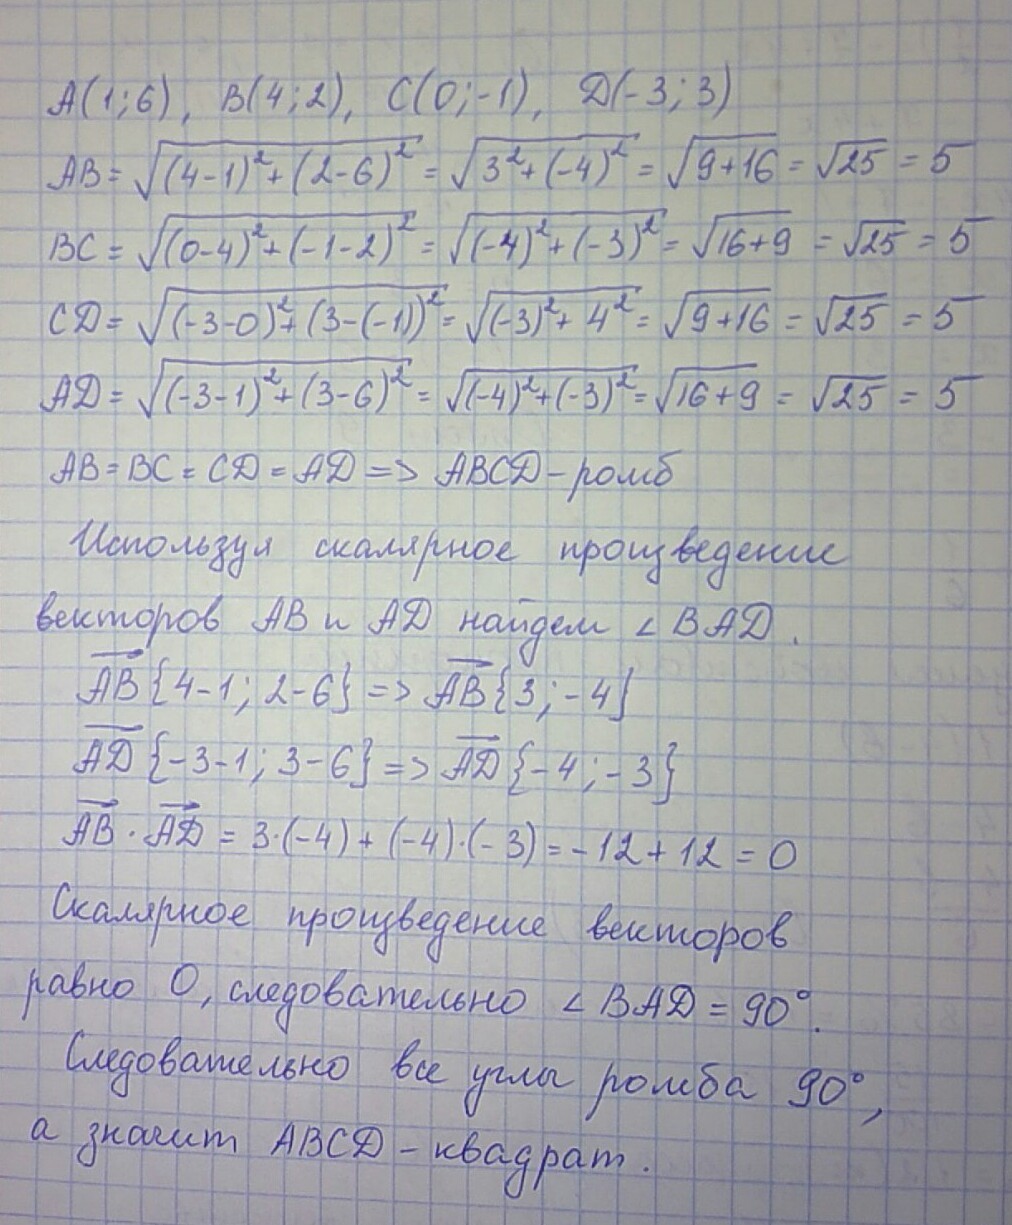 A(1;6), B(4;2), C(0;-1), D(-3;3)
AB = √((4-1)²+(2-6)²) = √(3²+(-4)²) = √(9+16) = √25 = 5
BC = √((0-4)²+(-1-2)²) = √((-4)²+(-3)²) = √(16+9) = √25 = 5
CD = √((-3-0)²+(3-(-1))²) = √((-3)²+4²) = √(9+16) = √25 = 5
AD = √((-3-1)²+(3-6)²) = √((-4)²+(-3)²) = √(16+9) = √25 = 5
AB = BC = CD = AD => ABCD - ромб
Используя скалярное произведение
векторов AB и AD найдем ∠BAD.
AB→{4-1; 2-6} => AB→{3; -4}
AD→{-3-1; 3-6} => AD→{-4; -3}
AB→ · AD→ = 3·(-4) + (-4)·(-3) = -12 + 12 = 0
Скалярное произведение векторов
равно 0, следовательно ∠BAD = 90°.
Следовательно все углы ромба 90°,
а значит ABCD - квадрат.